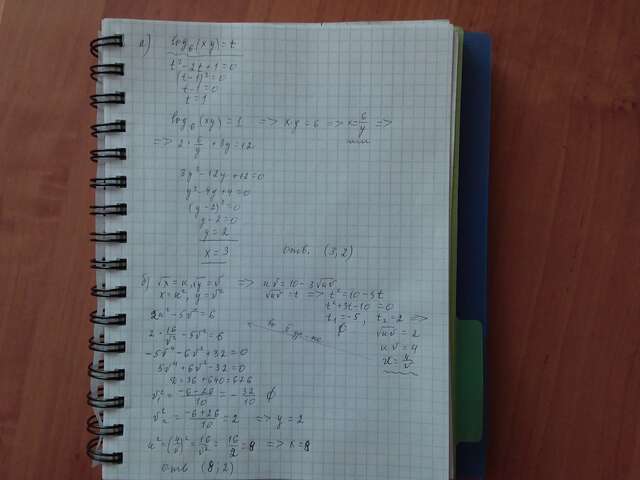 а) log₆(xy)=t
t²-2t+1=0
(t-1)²=0
t-1=0
t=1
log₆(xy)=1 => x·y=6 => x=6/y =>
=> 2·6/y+3y=12
3y²-12y+12=0
y²-4y+4=0
(y-2)²=0
y-2=0
y=2
x=3 Отв. (3,2)
б) √x=u, √y=v => uv=10-3√uv
x=u², y=v² √uv=t => t²=10-3t
t²+3t-10=0
2u²-5v²=6 t₁=-5, t₂=2 =>
∅ √uv=2
2·16/v²-5v²=6 uv=4
-5v⁴-6v²+32=0 u=4/v
5v⁴+6v²-32=0
D=36+640=676
v²=(-6-26)/10=-32/10 ∅
v²=(-6+26)/10=2 => y=2
u²=(4/v)²=16/v²=16/2=8 => x=8
Отв (8;2)